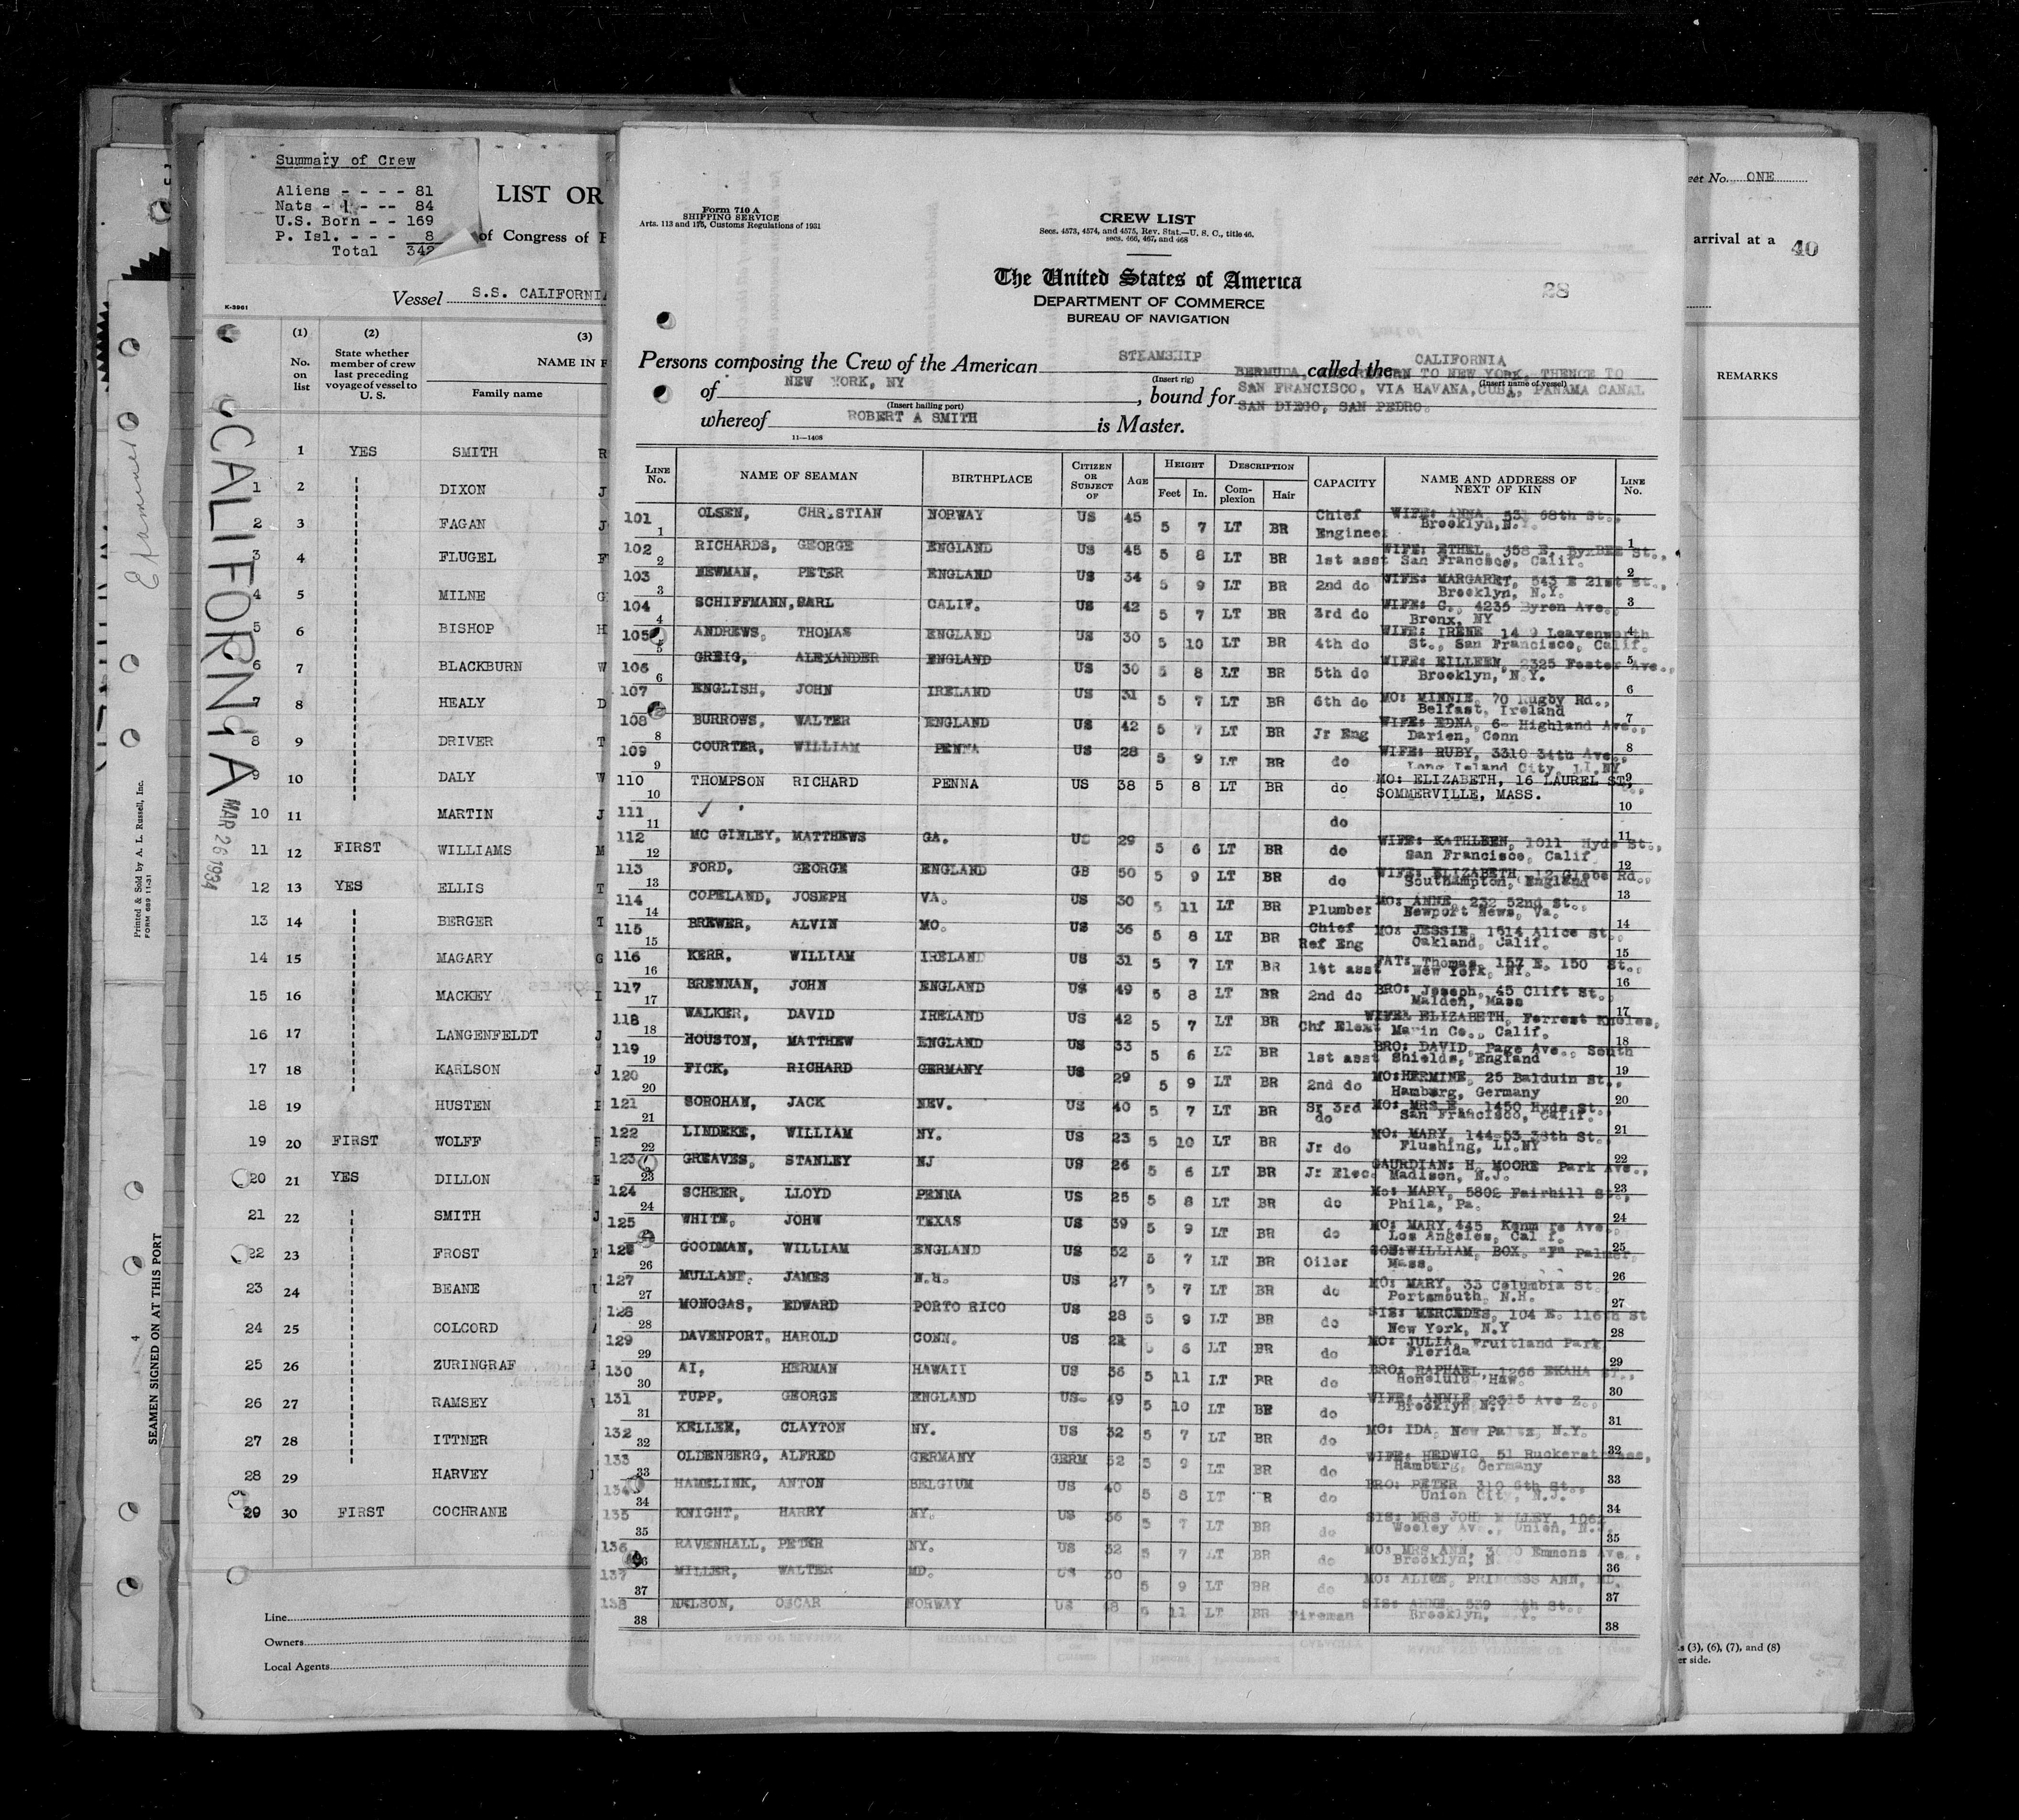 Summary of Crew
Aliens - - - - 81
Nats - - - -- 84
U.S. Born - - 169
P. Isl. - - - 8
Total 342
LIST OR
of Congress of
Vessel S.S. CALIFORNIA
K-3961
(1) (2) (3)
No. on list
State whether member of crew last preceding voyage of vessel to U. S.
NAME IN F
Family name
CALIFORNIA
MAR 26 1934
1 YES SMITH R
1 2 DIXON J
2 3 FAGAN J
3 4 FLUGEL F
4 5 MILNE G
5 6 BISHOP H
6 7 BLACKBURN W
7 8 HEALY D
8 9 DRIVER T
9 10 DALY W
10 11 MARTIN J
11 12 FIRST WILLIAMS M
12 13 YES ELLIS T
13 14 BERGER T
14 15 MAGARY G
15 16 MACKEY
16 17 LANGENFELDT J
17 18 KARLSON J
18 19 HUSTEN
19 20 FIRST WOLFF
20 21 YES DILLON
21 22 SMITH J
22 23 FROST
23 24 BEANE
24 25 COLCORD
25 26 ZURINGRAF
26 27 RAMSEY
27 28 ITTNER
28 29 HARVEY
29 30 FIRST COCHRANE
Line
Owners
Local Agents
Examined
Printed & Sold by A. L. Russell, Inc.
FORM 689 11-31
SEAMEN SIGNED ON AT THIS PORT
4
Form 710 A
SHIPPING SERVICE
Arts. 113 and 175, Customs Regulations of 1931
CREW LIST
Secs. 4573, 4574, and 4575, Rev. Stat.—U. S. C., title 46.
secs. 466, 467, and 468
The United States of America
DEPARTMENT OF COMMERCE
BUREAU OF NAVIGATION
28
Persons composing the Crew of the American STEAMSHIP called the CALIFORNIA
(Insert rig) (Insert name of vessel)
of NEW YORK, NY, bound for BERMUDA, RETURN TO NEW YORK, THENCE TO
SAN FRANCISCO, VIA HAVANA, CUBA, PANAMA CANAL
SAN DIEGO, SAN PEDRO.
(Insert hailing port)
whereof ROBERT A SMITH is Master.
11—1408
LINE No. NAME OF SEAMAN BIRTHPLACE CITIZEN OR SUBJECT OF AGE HEIGHT Feet In. DESCRIPTION Complexion Hair CAPACITY NAME AND ADDRESS OF NEXT OF KIN LINE No.
101 1 OLSEN, CHRISTIAN NORWAY US 45 5 7 LT BR Chief Engineer WIFE: ANNA, 68th St., Brooklyn, N.Y. 1
102 2 RICHARDS, GEORGE ENGLAND US 45 5 8 LT BR 1st asst WIFE: ETHEL, 358 E. St., San Francisco, Calif. 2
103 3 NEWMAN, PETER ENGLAND US 34 5 9 LT BR 2nd do WIFE: MARGARET, 543 E 21st St., Brooklyn, N.Y. 3
104 4 SCHIFFMANN, CARL CALIF. US 42 5 7 LT BR 3rd do WIFE: C., 4235 Byron Ave., Bronx, NY 4
105 5 ANDREWS, THOMAS ENGLAND US 30 5 10 LT BR 4th do WIFE: IRENE Leavenworth St., San Francisco, Calif. 5
106 6 GREIG, ALEXANDER ENGLAND US 30 5 8 LT BR 5th do WIFE: EILLEEN, 2325 Foster Ave., Brooklyn, N.Y. 6
107 ENGLISH, JOHN IRELAND US 31 5 7 LT BR 6th do MO: MINNIE, 70 Rugby Rd., Belfast, Ireland 7
108 8 BURROWS, WALTER ENGLAND US 42 5 7 LT BR Jr Eng WIFE: EDNA, Highland Ave., Darien, Conn 8
109 9 COURTER, WILLIAM PENNA US 28 5 9 LT BR do WIFE: RUBY, 3310 34th Ave., Long Island City, LI.NY 9
110 10 THOMPSON RICHARD PENNA US 38 5 8 LT BR do MO: ELIZABETH, 16 LAUREL ST., SOMMERVILLE, MASS. 10
111 11 ✓ do 11
112 12 MC GINLEY, MATTHEWS GA. US 29 5 6 LT BR do WIFE: KATHLEEN, 1011 Hyde St., San Francisco, Calif 12
113 13 FORD, GEORGE ENGLAND GB 50 5 9 LT BR do WIFE: ELIZABETH, 12 Globe Rd., Southampton, England 13
114 14 COPELAND, JOSEPH VA. US 30 5 11 LT BR Plumber MO: ANNE, 232 52nd St., Newport News, Va. 14
115 15 BREWER, ALVIN MO. US 36 5 8 LT BR Chief Ref Eng MO: JESSIE, 1514 Alice St Oakland, Calif. 15
116 16 KERR, WILLIAM IRELAND US 31 5 7 LT BR 1st asst FAT: Thomas, 157 E. 150 St., New York, NY. 16
117 17 BRENNAN, JOHN ENGLAND US 49 5 8 LT BR 2nd do BRO: Joseph, 45 Clift St., Malden, Mass 17
118 18 WALKER, DAVID IRELAND US 42 5 7 LT BR Chf Elect WIFE: ELIZABETH, Forrest Knoles, Marin Co., Calif. 18
119 19 HOUSTON, MATTHEW ENGLAND US 33 5 6 LT BR 1st asst BRO: DAVID, Page Ave., South Shields, England 19
120 20 FICK, RICHARD GERMANY US 29 5 9 LT BR 2nd do MO: HERMINE, 25 Balduin St., Hamburg, Germany 20
121 21 SOROHAN, JACK NEV. US 40 5 7 LT BR Sr 3rd do MO: MRS E., 1450 Hyde St., San Francisco, Calif. 21
122 22 LINDEKE, WILLIAM NY. US 23 5 10 LT BR Jr do MO: MARY, 144-53 38th St., Flushing, LI.NY 22
123 23 GREAVES, STANLEY NJ US 26 5 6 LT BR Jr Elec GAURDIAN: H. MOORE Park Ave., Madison, N.J. 23
124 24 SCHEER, LLOYD PENNA US 25 5 8 LT BR do Mo: MARY, 5802 Fairhill St., Phila, Pa. 24
125 WHITE, JOHN TEXAS US 39 5 9 LT BR do MO: MARY, 445 Ave., Los Angeles, 25
126 26 GOODMAN, WILLIAM ENGLAND US 52 5 7 LT BR Oiler SON: WILLIAM, BOX. "F" Palmer, Mass. 26
127 27 MULLANE, JAMES N.H. US 27 5 7 LT BR do MO: MARY, 33 Columbia St. Portsmouth, N.H. 27
128 28 MONOGAS, EDWARD PORTO RICO US 28 5 9 LT BR do SIS: MERCEDES, 104 E. 116th St New York, N.Y 28
129 29 DAVENPORT, HAROLD CONN. US 6 LT BR do MO: JULIA, Fruitland Park, Florida 29
130 30 AI, HERMAN HAWAII US 36 5 11 LT BR do BRO: RAPHAEL, 1266 EKAHA ST., Honolulu, Haw. 30
131 31 TUPP, GEORGE ENGLAND US 49 5 10 LT BR do WIFE: ANNIE, 2313 Ave Z., Brooklyn N.Y 31
132 32 KELLER, CLAYTON NY. US 32 5 7 LT BR do MO: IDA, New Paltz, N.Y. 32
133 33 OLDENBERG, ALFRED GERMANY GERM 52 5 9 LT BR do WIFE: HEDWIG, 51 Hamburg, Germany 33
134 34 HAMELINK, ANTON BELGIUM US 40 5 8 LT R do BRO: PETER 310 6th St., Union City, N.J. 34
135 35 KNIGHT, HARRY NY. US 36 5 7 LT BR do SIS: MRS Union, 35
136 RAVENHALL, PETER NY. US 32 5 7 LT BR do MO: MRS ANN, Emmons Ave., Brooklyn, N 36
137 37 MILLER, WALTER MD. US 30 5 9 LT BR do MO: ALICE, PRINCESS ANN, MD. 37
138 38 NELSON, OSCAR NORWAY US 5 11 LT BR Fireman SIS: ANNE, 539 St., Brooklyn, 38
eet No. ONE
arrival at a 40
REMARKS
s (3), (6), (7), and (8)
er side.